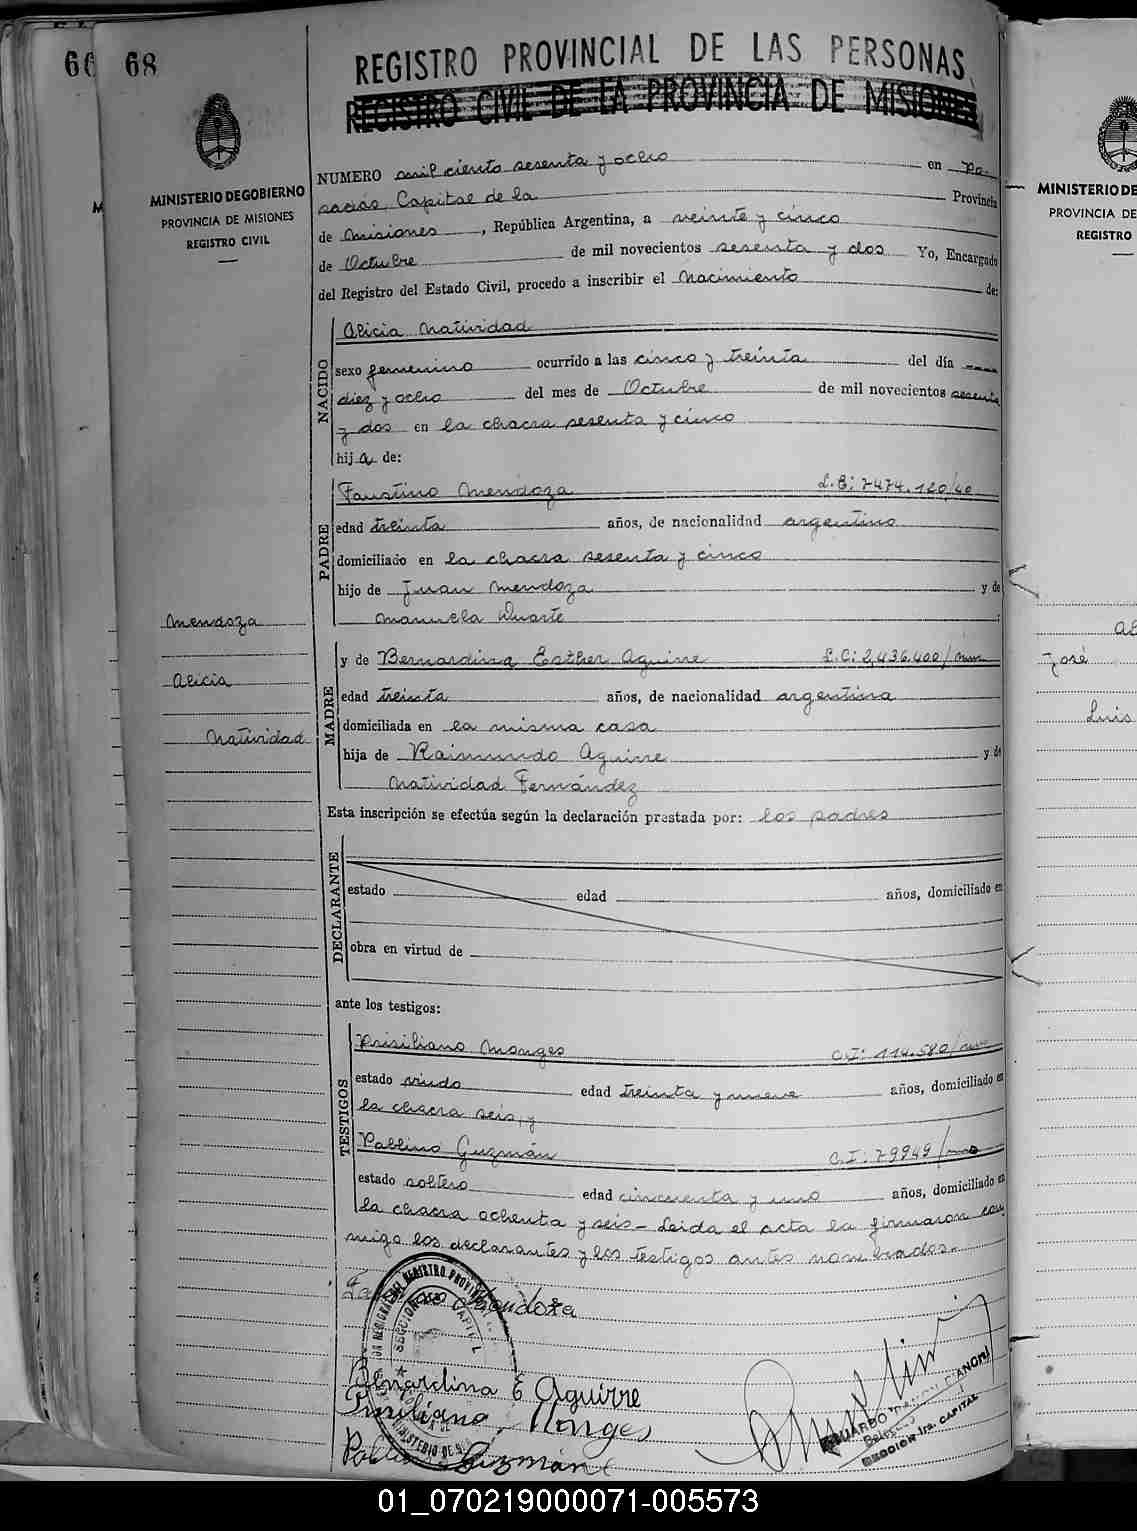 66 68
REGISTRO PROVINCIAL DE LAS PERSONAS
REGISTRO CIVIL DE LA PROVINCIA DE MISIONES
MINISTERIO DE GOBIERNO
PROVINCIA DE MISIONES
REGISTRO CIVIL
NUMERO mil ciento sesenta y ocho en Po-
sadas, Capital de la Provincia
de Misiones, República Argentina, a veinte y cinco
de Octubre de mil novecientos sesenta y dos Yo, Encargado
del Registro del Estado Civil, procedo a inscribir el Nacimiento de:
NACIDO
Alicia Natividad
sexo femenino ocurrido a las cinco y treinta del día
diez y ocho del mes de Octubre de mil novecientos sesenta
y dos en la chacra sesenta y cinco
hija de:
PADRE
Faustino Mendoza L.E: 7474.120/40
edad treinta años, de nacionalidad argentino
domiciliado en la chacra sesenta y cinco
hijo de Juan Mendoza y de
Manuela Duarte
Mendoza
Alicia
Natividad
MADRE
y de Bernardina Esther Aguirre L.C: 2,436.400/
edad treinta años, de nacionalidad argentina
domiciliada en la misma casa
hija de Raimundo Aguirre y de
Natividad Fernández
Esta inscripción se efectúa según la declaración prestada por: los padres
DECLARANTE
estado edad años, domiciliado en
obra en virtud de
ante los testigos:
TESTIGOS
Prisiliano Monges C.I: 114.580/
estado viudo edad treinta y nueve años, domiciliado en
la chacra seis, y
Pablino Guzmán C.I: 79949/
estado soltero edad cincuenta y uno años, domiciliado en
la chacra ochenta y seis - Leida el acta la firmaron con
migo los declarantes y los testigos antes nombrados.-
Mendoza
Bernardina E Aguirre
Monges
Guzmán
SECCION CAPITAL
MINISTERIO DE
EDUARDO
SECCION 1ra. CAPITAL
MINISTERIO DE
PROVINCIA DE
REGISTRO
José
Luis
01_070219000071-005573